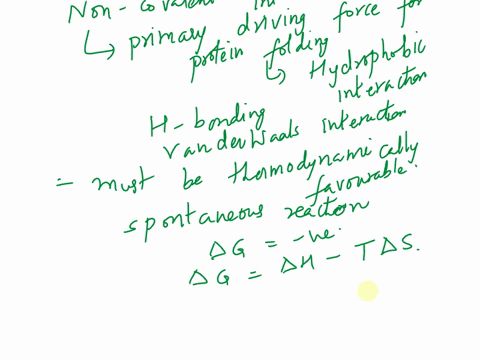 Non - covalent in
↳ primary driving force for
protein folding
↳ Hydrophobic
interaction
H - bonding
van der Waals interaction
= must be thermodynamically
favourable.
spontaneous reaction
ΔG = -ve.
ΔG = ΔH - TΔS.